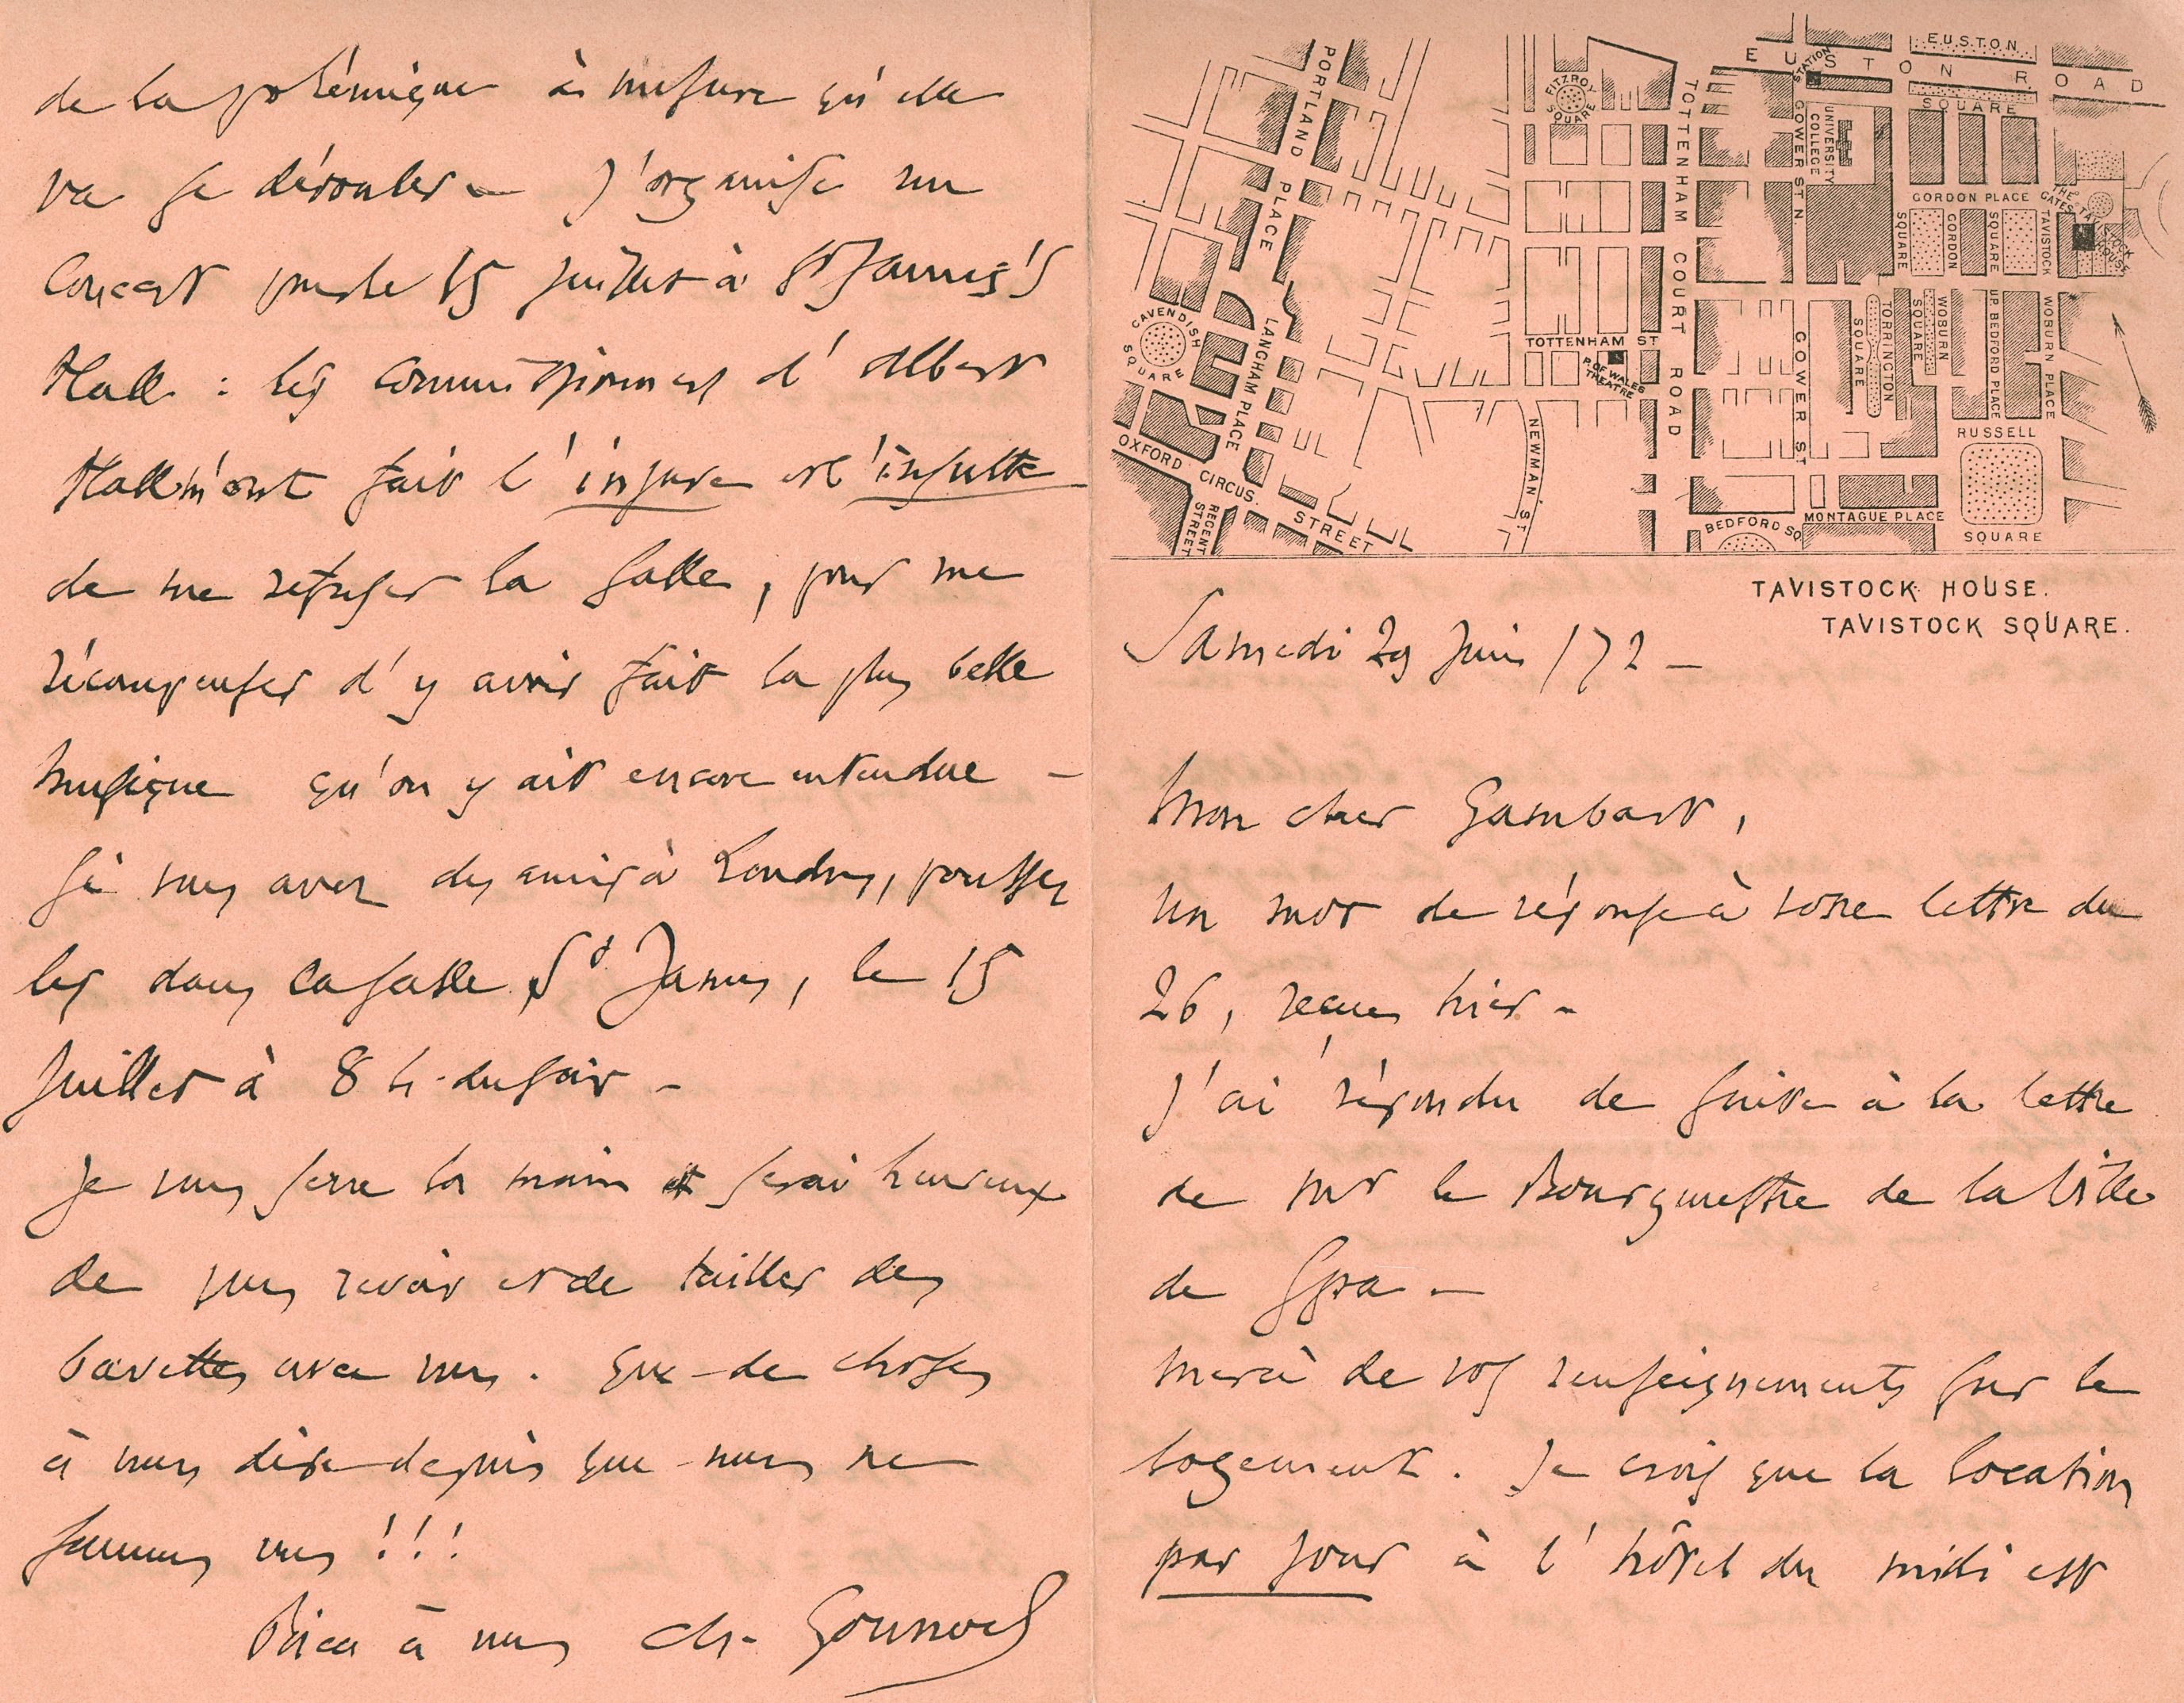 de la polémique à mesure qu'elle
va se dérouler – J'organise un
Concert pour le 15 Juillet à St James's
Hall : les commissionners d'Albert
Hall m'ont fait l'injure et l'insulte
de me refuser la salle, pour me
récompenser d'y avoir fait la plus belle
musique qu'on y ait encore entendue –
Si vous avez des amis à Londres, poussez
les dans la salle St James, le 15
Juillet à 8 h. du soir –
Je vous serre la main et serai heureux
de vous revoir et de tailler des
bavettes avec vous. Que de choses
à nous dire depuis que nous ne
sommes vus !!!
Bien à vous Ch. Gounod
PORTLAND PLACE
FITZROY SQUARE
TOTTENHAM COURT ROAD
EUSTON ROAD
STATION
EUSTON SQUARE
GOWER ST N.
UNIVERSITY COLLEGE
GORDON PLACE
THE GATES
TAVISTOCK HOUSE
SQUARE
GORDON
SQUARE
TAVISTOCK
CAVENDISH SQUARE
LANGHAM PLACE
TOTTENHAM ST
P. OF WALES THEATRE
GOWER ST
TORRINGTON SQUARE
WOBURN SQUARE
UP. BEDFORD PLACE
WOBURN PLACE
OXFORD CIRCUS STREET
REGENT STREET
NEWMAN ST
BEDFORD SQ
MONTAGUE PLACE
RUSSELL SQUARE
TAVISTOCK HOUSE.
TAVISTOCK SQUARE.
Samedi 29 Juin /72 –
Mon cher Gambart,
Un mot de réponse à votre lettre du
26, reçue hier –
J'ai répondu de suite à la lettre
de Mr le Bourgmestre de la Ville
de Spa –
Merci de vos renseignements sur le
logement. Je crois que la location
par jour à l'hôtel du midi est